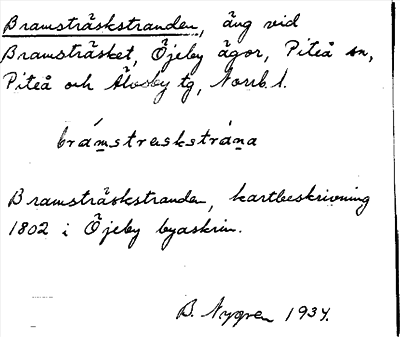 Bramsträskstranden, äng vid
Bramsträsket, Öjeby ägor, Piteå sn,
Piteå och Älvsby tg, Norrb. l.
brámstreskstrána
Bramsträskstranden, kartbeskrivning
1802 i Öjeby byaskrin.
B. Nygren 1934.